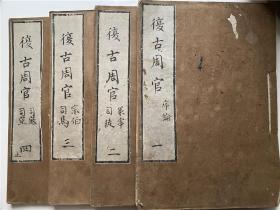 復古周官 序論 一
復古周官 冢宰 司徒 二
復古周官 宗伯 司馬 三
復古周官 司寇 司空 四上